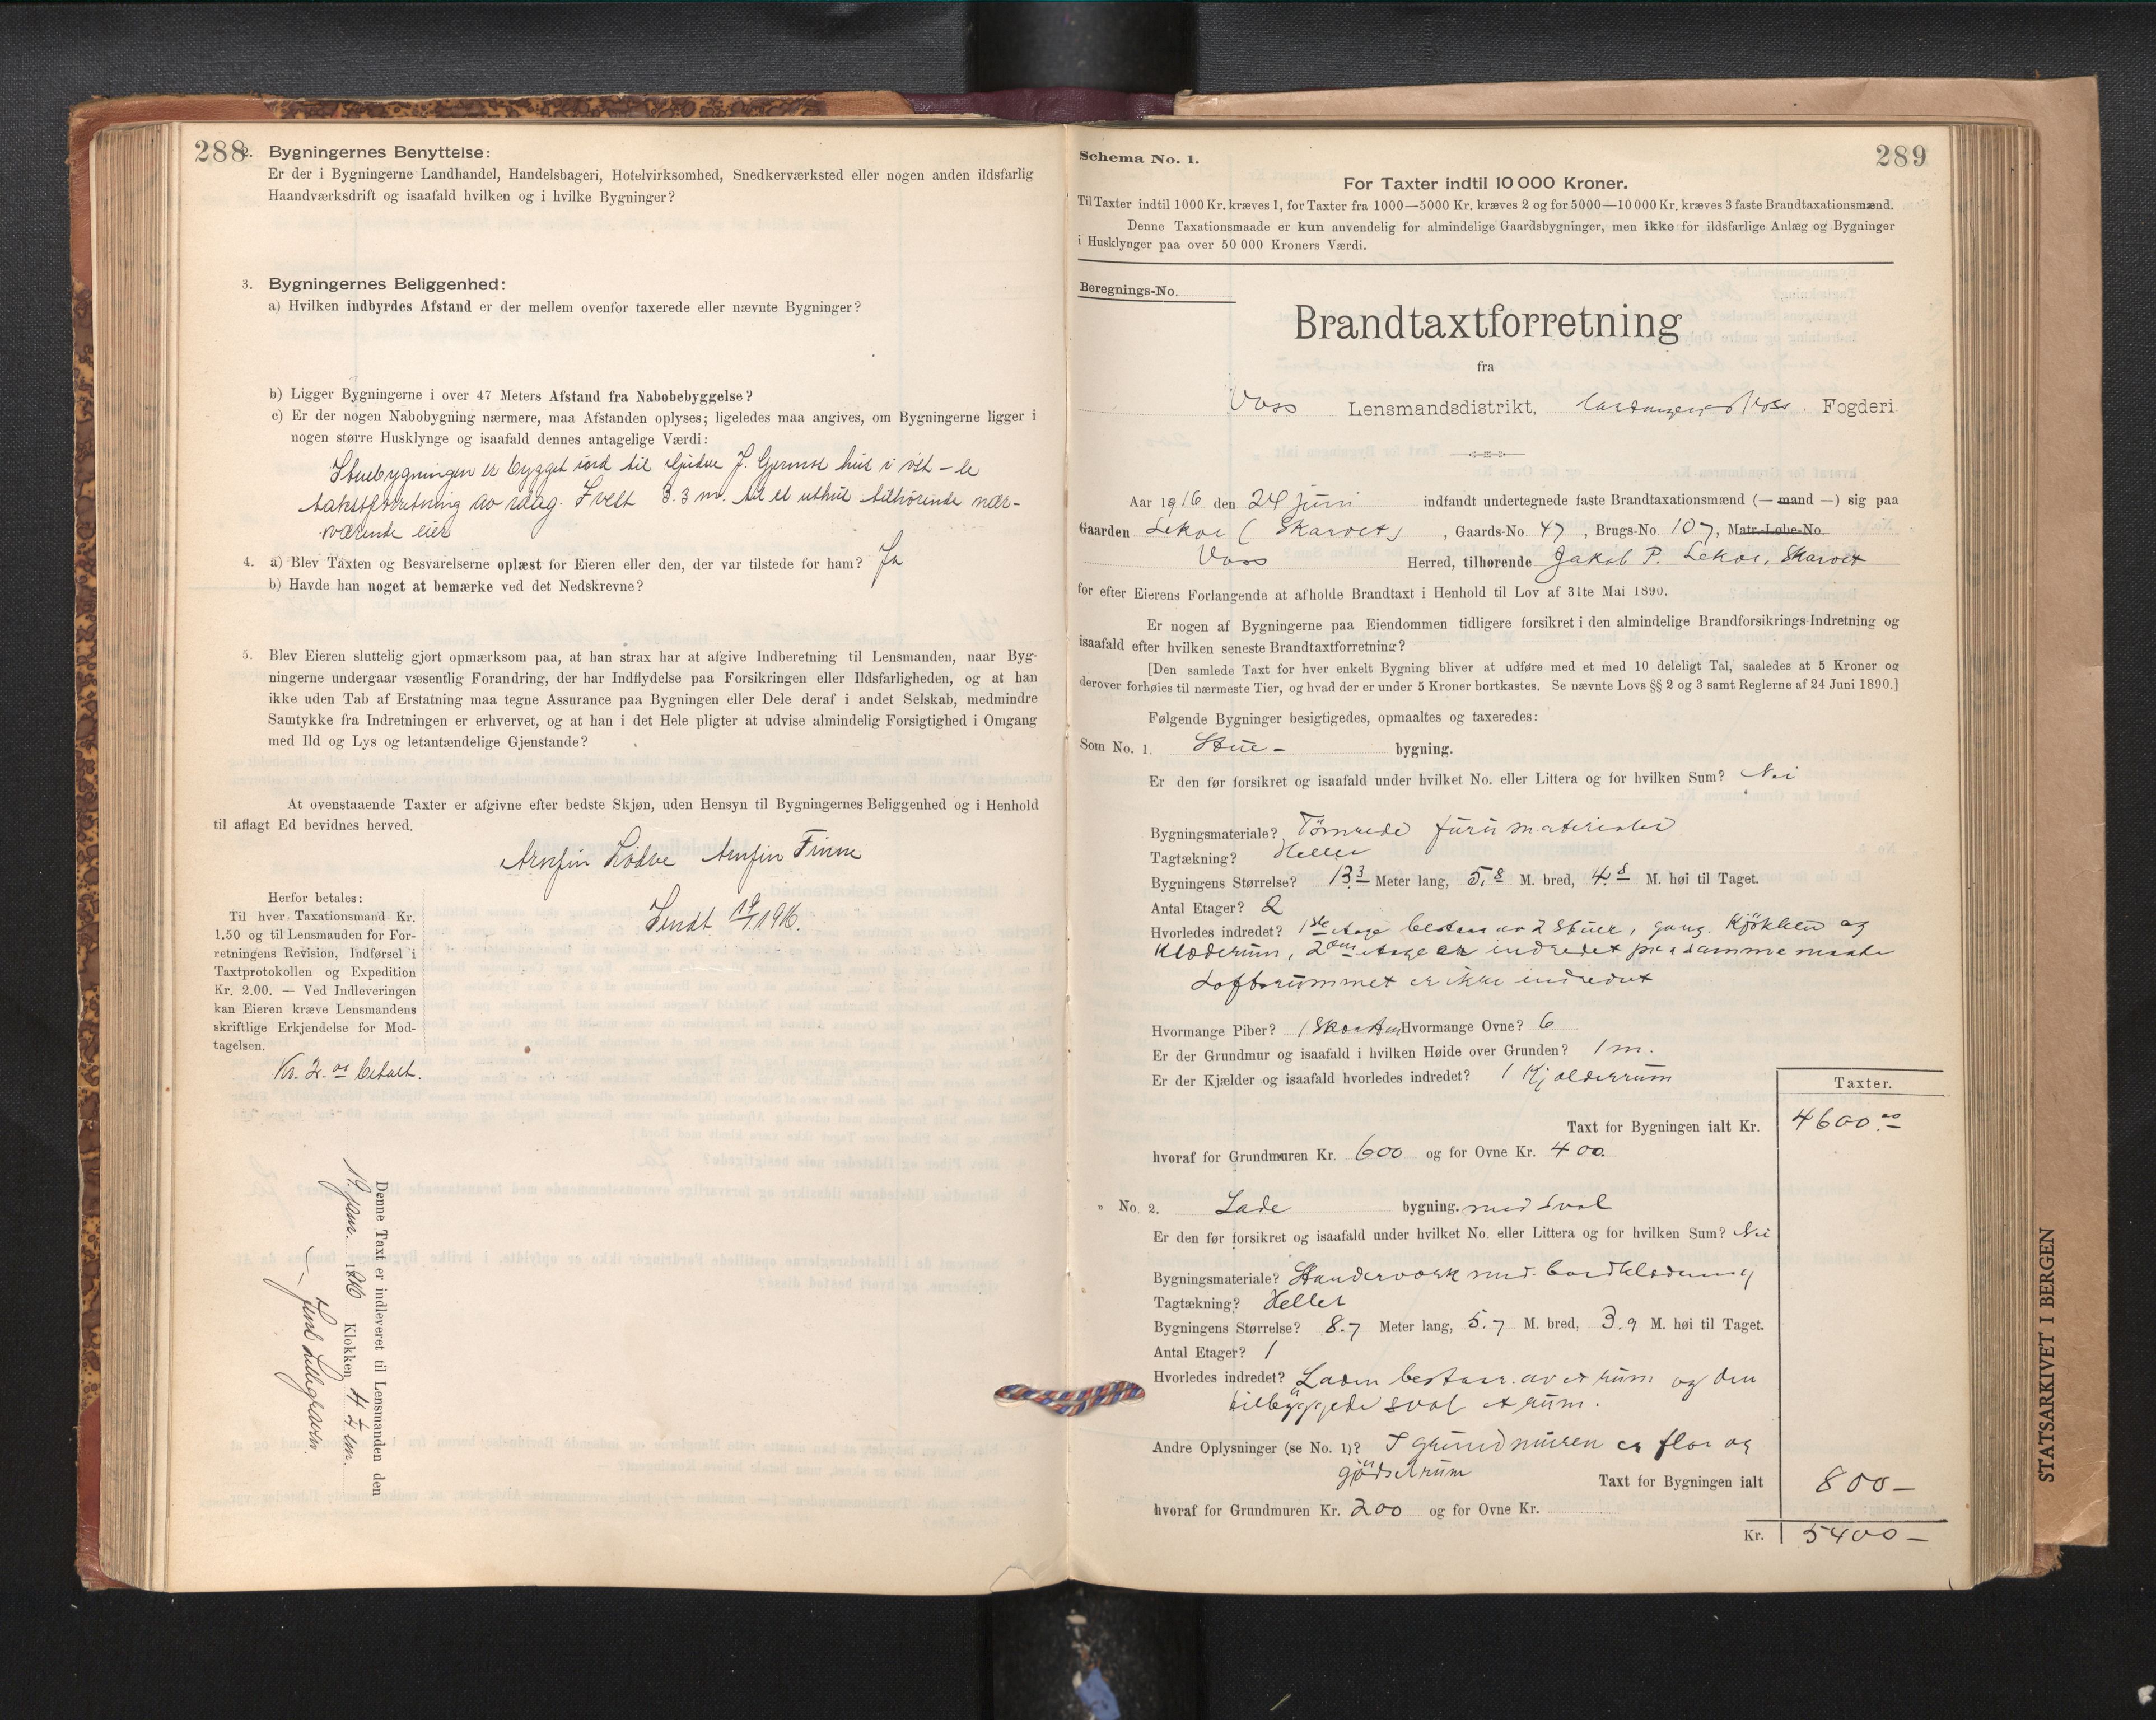 288
2. Bygningernes Benyttelse:
Er der i Bygningerne Landhandel, Handelsbageri, Hotelvirksomhed, Snedkerværksted eller nogen anden ildsfarlig
Haandværksdrift og isaafald hvilken og i hvilke Bygninger?
3. Bygningernes Beliggenhed:
a) Hvilken indbyrdes Afstand er der mellem ovenfor taxerede eller nævnte Bygninger?
b) Ligger Bygningerne i over 47 Meters Afstand fra Nabobebyggelse?
c) Er der nogen Nabobygning nærmere, maa Afstanden oplyses; ligeledes maa angives, om Bygningerne ligger i
nogen større Husklynge og isaafald dennes antagelige Værdi:
Stuebygningen er bygget ind til hus i
takstforretning av idag. I vest 3.3 m. til et uthus tilhørende nær-
værende eier
4. a) Blev Taxten og Besvarelserne oplæst for Eieren eller den, der var tilstede for ham? Ja
b) Havde han noget at bemærke ved det Nedskrevne?
5. Blev Eieren sluttelig gjort opmærksom paa, at han strax har at afgive Indberetning til Lensmanden, naar Byg-
ningerne undergaar væsentlig Forandring, der har Indflydelse paa Forsikringen eller Ildsfarligheden, og at han
ikke uden Tab af Erstatning maa tegne Assurance paa Bygningen eller Dele deraf i andet Selskab, medmindre
Samtykke fra Indretningen er erhvervet, og at han i det Hele pligter at udvise almindelig Forsigtighed i Omgang
med Ild og Lys og letantændelige Gjenstande?
At ovenstaaende Taxter er afgivne efter bedste Skjøn, uden Hensyn til Bygningernes Beliggenhed og i Henhold
til aflagt Ed bevidnes herved.
Arnfin Lødve Arnfin Finne
Sendt 1916.
Herfor betales:
Til hver Taxationsmand Kr.
1.50 og til Lensmanden for For-
retningens Revision, Indførsel i
Taxtprotokollen og Expedition
Kr. 2.00. — Ved Indleveringen
kan Eieren kræve Lensmandens
skriftlige Erkjendelse for Mod-
tagelsen.
Kr. 2.00 betalt.
Denne Taxt er indleveret til Lensmanden den
1916 Klokken 4 em.
Lillegraven
Schema No. 1.
289
For Taxter indtil 10 000 Kroner.
Til Taxter indtil 1000 Kr. kræves 1, for Taxter fra 1000—5000 Kr. kræves 2 og for 5000—10 000 Kr. kræves 3 faste Brandtaxationsmænd.
Denne Taxationsmaade er kun anvendelig for almindelige Gaardsbygninger, men ikke for ildsfarlige Anlæg og Bygninger
i Husklynger paa over 50 000 Kroners Værdi.
Beregnings-No.
Brandtaxtforretning
fra
Voss Lensmandsdistrikt, Hardanger og Voss Fogderi
Aar 1916 den 24 juni indfandt undertegnede faste Brandtaxationsmænd (— mand —) sig paa
Gaarden Lekve (Skarvet), Gaards-No. 47, Brugs-No 107, Matr.-Løbe-No.
Voss Herred, tilhørende Jakob P. Lekve, Skarvet
for efter Eierens Forlangende at afholde Brandtaxt i Henhold til Lov af 31te Mai 1890.
Er nogen af Bygningerne paa Eiendommen tidligere forsikret i den almindelige Brandforsikrings-Indretning og
isaafald efter hvilken seneste Brandtaxtforretning?
[Den samlede Taxt for hver enkelt Bygning bliver at udføre med et med 10 deleligt Tal, saaledes at 5 Kroner og
derover forhøies til nærmeste Tier, og hvad der er under 5 Kroner bortkastes. Se nævnte Lovs §§ 2 og 3 samt Reglerne af 24 Juni 1890.]
Følgende Bygninger besigtigedes, opmaaltes og taxeredes:
Som No. 1. Stue- bygning.
Er den før forsikret og isaafald under hvilket No. eller Littera og for hvilken Sum? Nei
Bygningsmateriale? Tømrede furumaterialer
Tagtækning? Heller
Bygningens Størrelse? 13.3 Meter lang, 5.8 M. bred, 4.8 M. høi til Taget.
Antal Etager? 2
Hvorledes indredet? 1ste etage bestaar av 2 stuer, gang, kjøkken og
klæderum, 2den etage er indredet paa samme maate
Loftsrummet er ikke indredet
Hvormange Piber? 1 Skorsten Hvormange Ovne? 6
Er der Grundmur og isaafald i hvilken Høide over Grunden? 1 m.
Er der Kjælder og isaafald hvorledes indredet? 1 Kjælderrum
Taxter.
Taxt for Bygningen ialt Kr. 4600.00
hvoraf for Grundmuren Kr. 600 og for Ovne Kr. 400.
" No. 2. Lade bygning. med sval
Er den før forsikret og isaafald under hvilket No. eller Littera og for hvilken Sum? Nei
Bygningsmateriale? Standerværk med bordklædning
Tagtækning? Heller
Bygningens Størrelse? 8.7 Meter lang, 5.7 M. bred, 3.9 M. høi til Taget.
Antal Etager? 1
Hvorledes indredet? Laden bestaar av et rum og den
tilbyggede sval et rum.
Andre Oplysninger (se No. 1)? I grundmuren er flor og
gjødselrum
Taxt for Bygningen ialt 800—
hvoraf for Grundmuren Kr. 200 og for Ovne Kr.
Kr. 5400—
STATSARKIVET I BERGEN